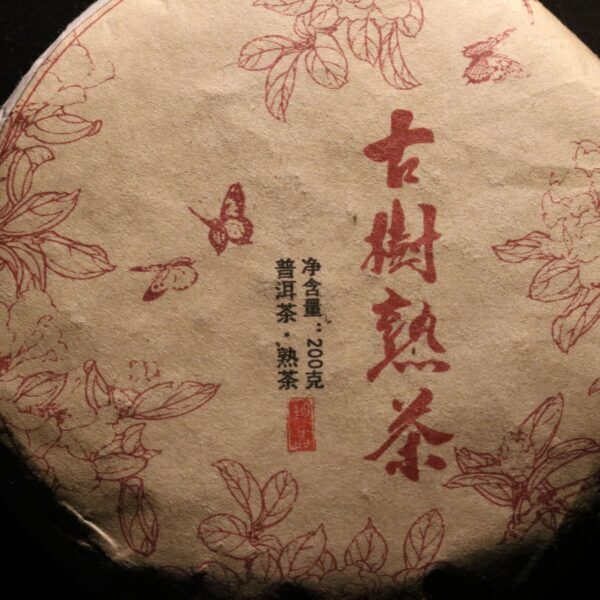 古樹熟茶
净含量:200克
普洱茶·熟茶
珍品